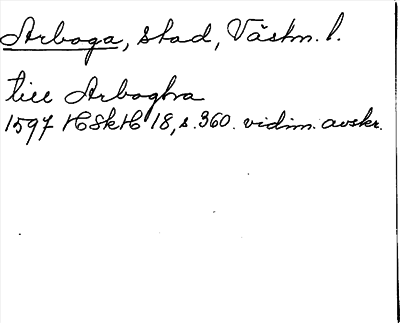 Arboga, stad, Västm. l.
till Arboghra
1597 HSkH 18, s. 360. vidim. avskr.